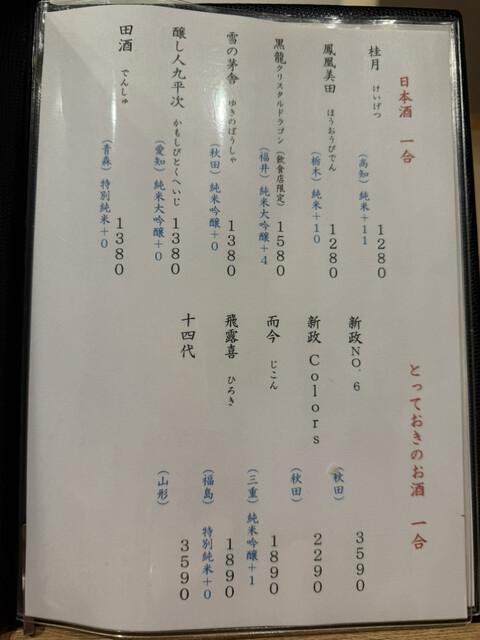 日本酒　一合
桂月　けいげつ
（高知）純米＋１１　１２８０
鳳凰美田　ほうおうびでん
（栃木）純米＋１０　１２８０
黒龍クリスタルドラゴン（飲食店限定）
（福井）純米大吟醸＋４　１５８０
雪の茅舎　ゆきのぼうしゃ
（秋田）純米吟醸＋０　１３８０
醸し人九平次　かもしびとくへいじ
（愛知）純米大吟醸＋０　１３８０
田酒　でんしゅ
（青森）特別純米＋０　１３８０
とっておきのお酒　一合
新政NO.６
（秋田）　３５９０
新政Colors
（秋田）　２２９０
而今　じこん
（三重）純米吟醸＋１　１８９０
飛露喜　ひろき
（福島）特別純米＋０　１８９０
十四代
（山形）　３５９０